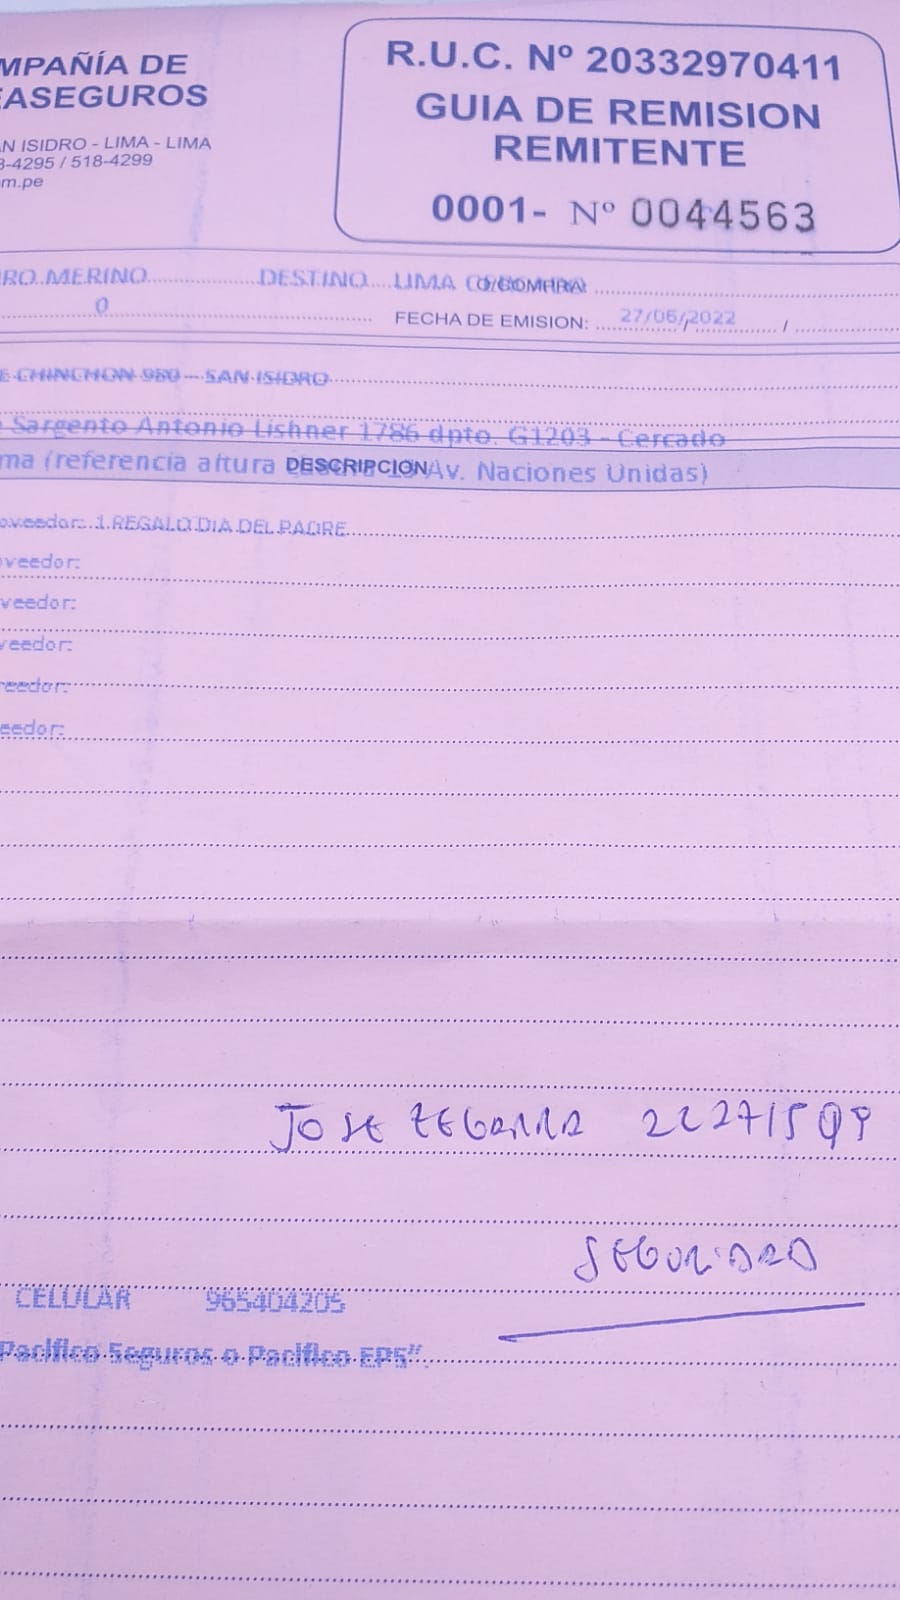 MPAÑÍA DE
EASEGUROS
N ISIDRO - LIMA - LIMA
8-4295 / 518-4299
m.pe
R.U.C. Nº 20332970411
GUIA DE REMISION
REMITENTE
0001- Nº 0044563
RO MERINO DESTINO LIMA O/COMPRA:
0 FECHA DE EMISION: 27/06/2022 /
E CHINCHON 980 - SAN ISIDRO
Sargento Antonio Lishner 1786 dpto. G1203 - Cercado
ma (referencia altura DESCRIPCION Av. Naciones Unidas)
oveedor: 1 REGALO DIA DEL PADRE
oveedor:
veedor:
veedor:
reedor:
eedor:
JOSE ZEGARRA
SEGURIDAD
CELULAR 965404205
Pacifico Seguros o Pacifico EPS".